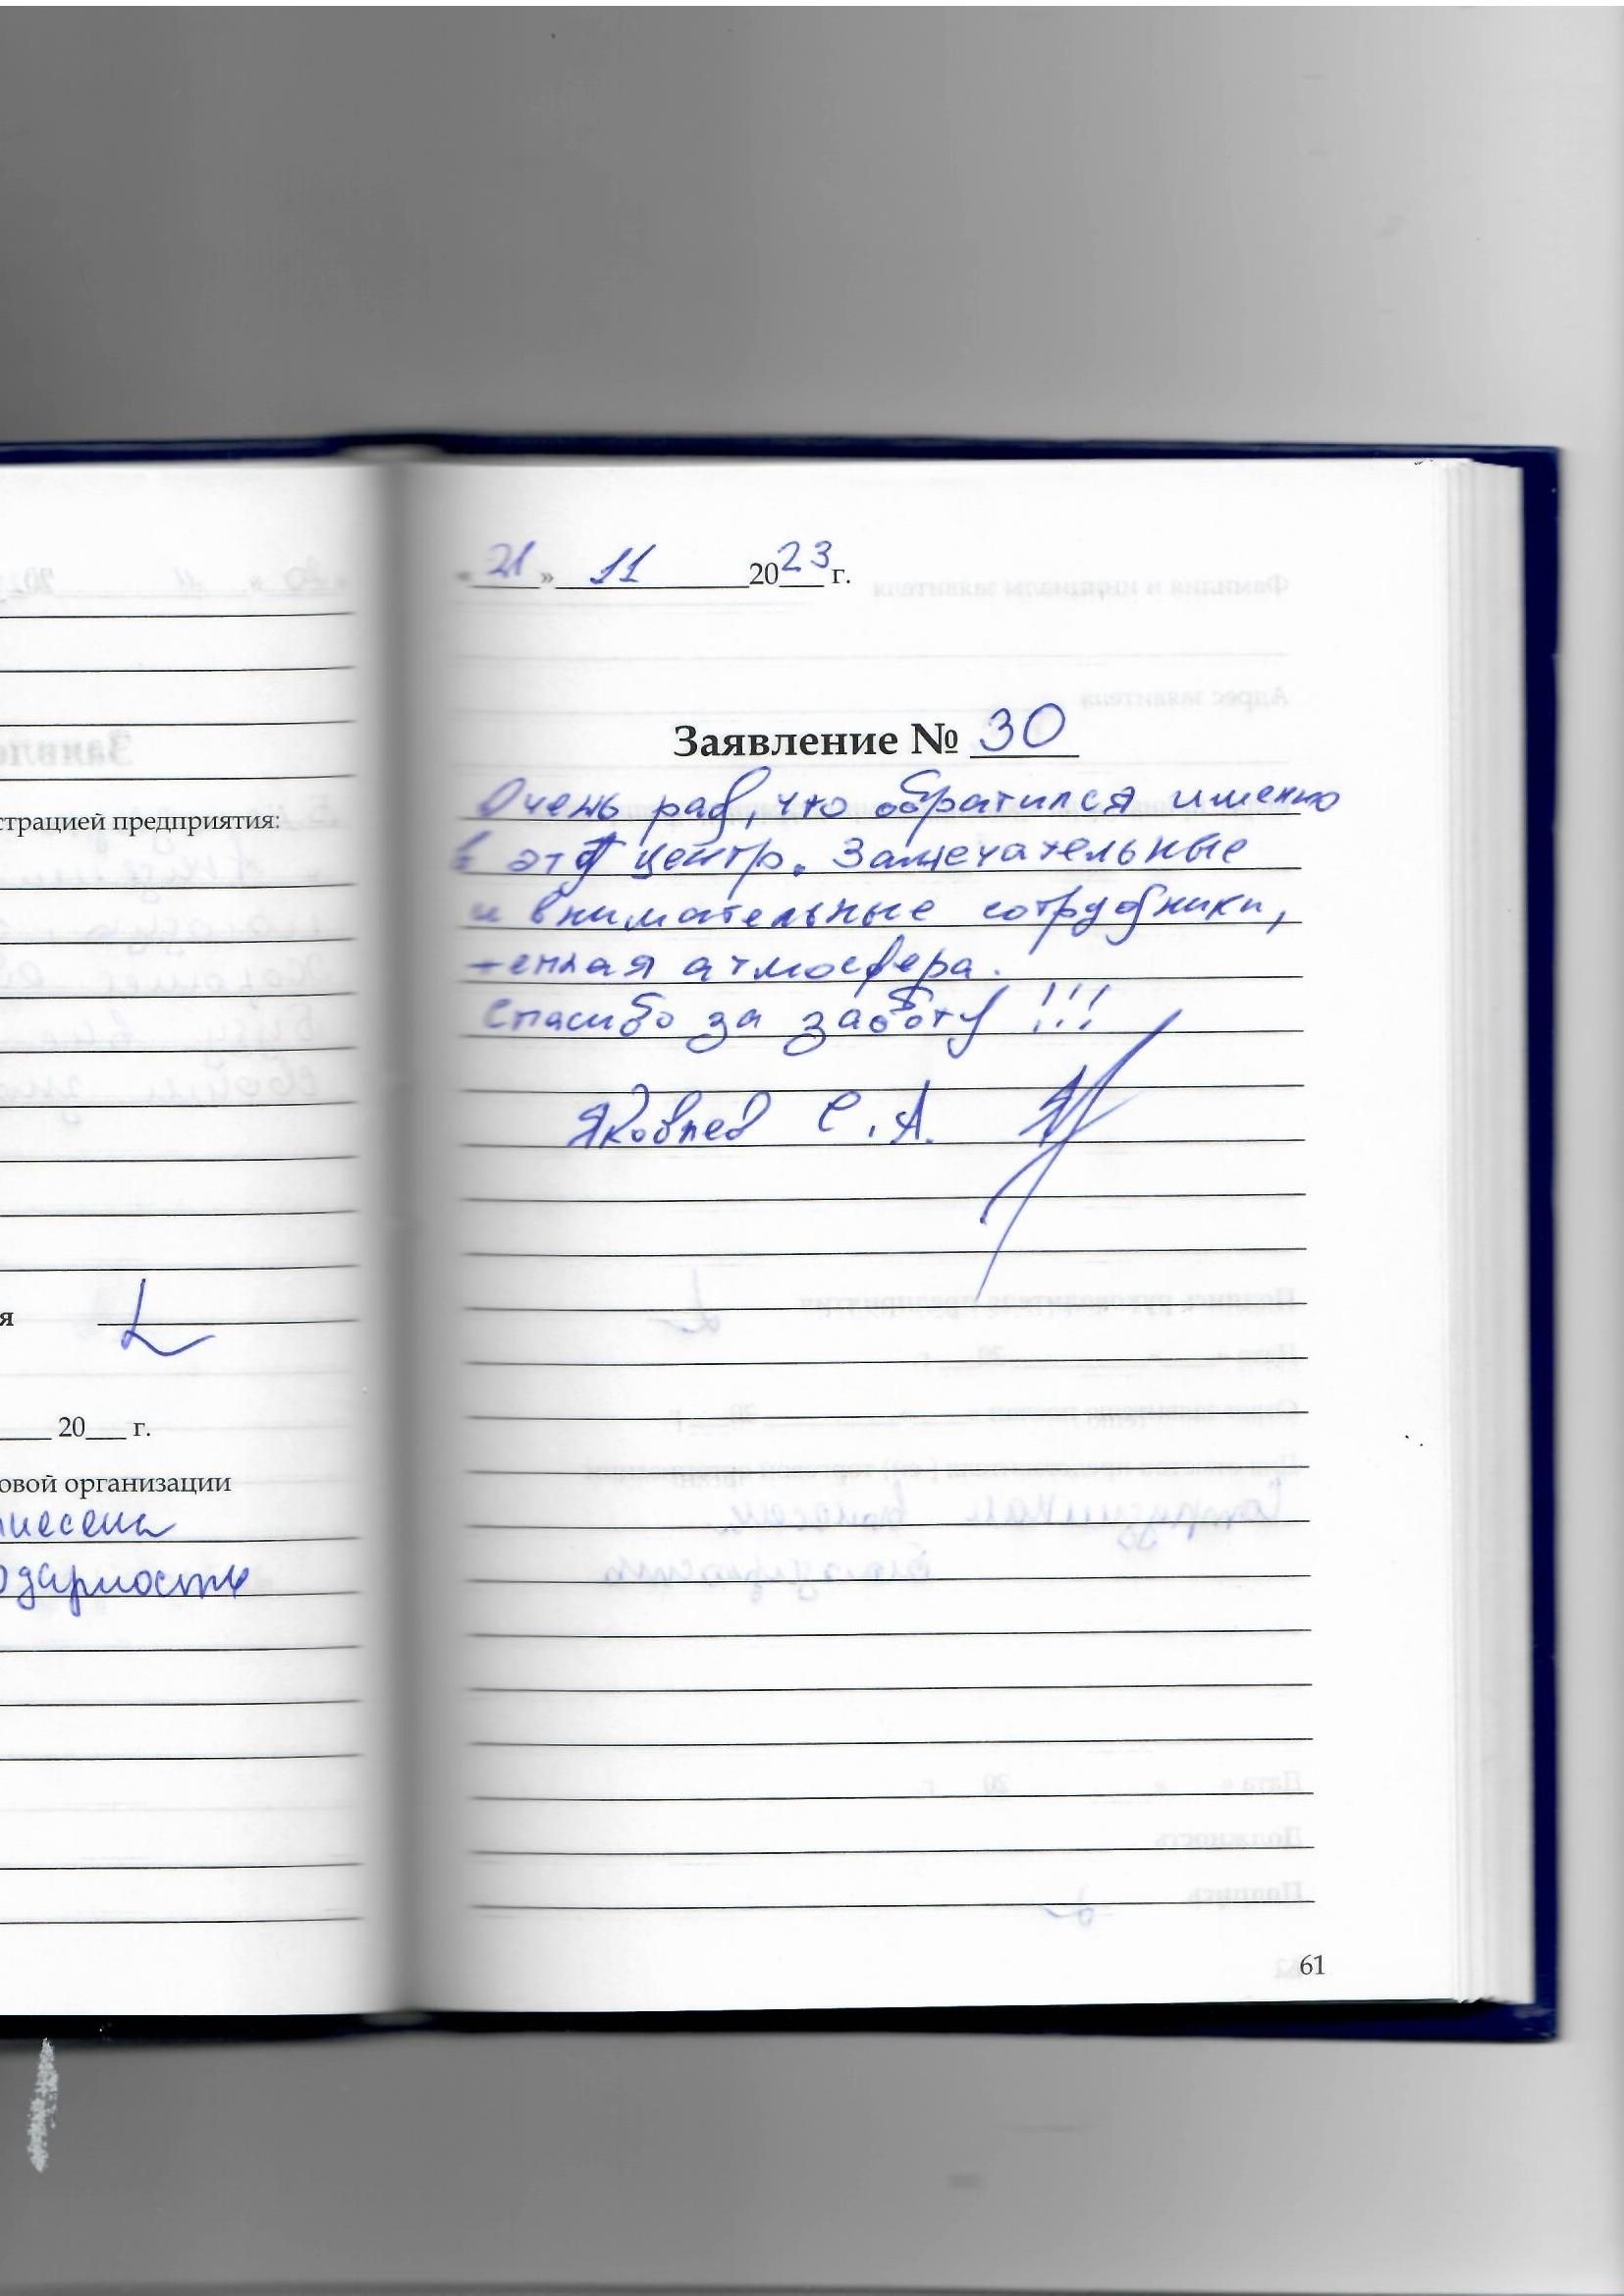 страцией предприятия:
я
20 г.
овой организации
несена
одарность
« 21 » 11 2023 г.
Заявление № 30
Очень рад, что обратился именно
в этот центр. Замечательные
и внимательные сотрудники,
теплая атмосфера.
Спасибо за заботу!!!
Яковлев С.А.
61